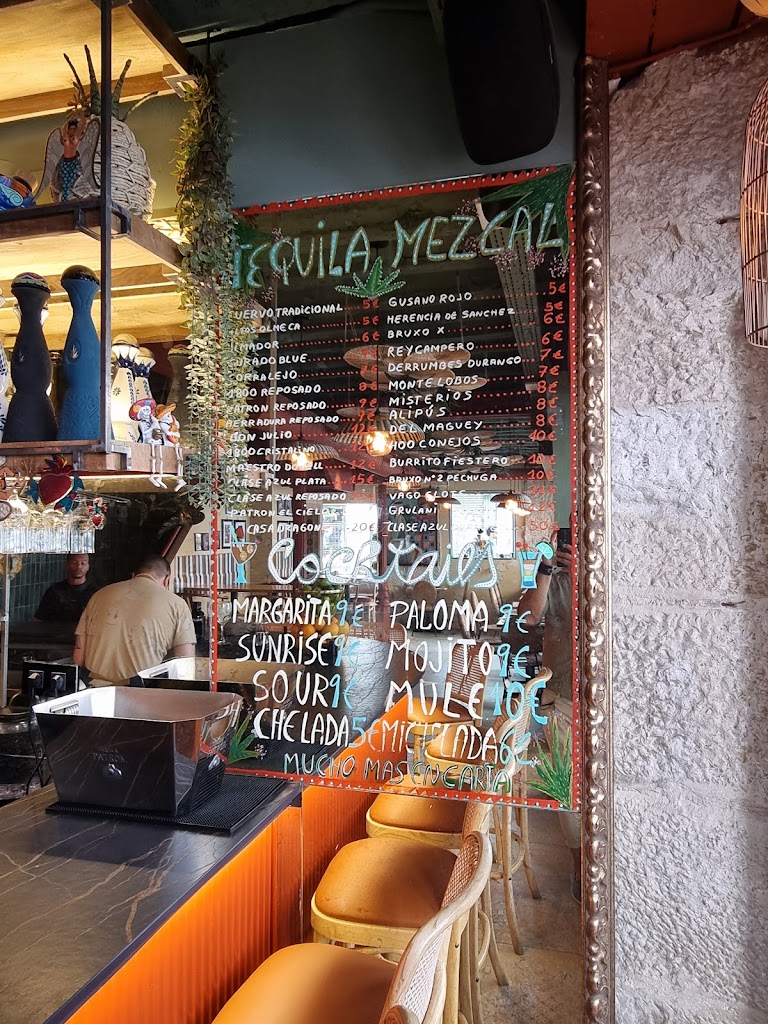 TEQUILA MEZCAL
UERVO TRADICIONAL 5€
OS OLMECA 5€
IMADOR 6€
URADO BLUE
ORRALEJO
1800 REPOSADO 8€
PATRON REPOSADO
HERRADURA REPOSADO
DON JULIO
1800 CRISTALINO
MAESTRO DOBEL 12€
CLASE AZUL PLATA 15€
CLASE AZUL REPOSADO
PATRON EL CIELO
CASA DRAGON 20€
GUSANO ROJO 5€
HERENCIA DE SANCHEZ 5€
BRUXO X 6€
REY CAMPERO 6€
DERRUMBES DURANGO 7€
MONTE LOBOS 7€
MISTERIOS 8€
ALIPÚS 8€
DEL MAGUEY 8€
400 CONEJOS 10€
BURRITO FIESTERO
BRUXO Nº2 PECHUGA
VAGO
GRULANI
CLASE AZUL
Cocktails
MARGARITA 9€ PALOMA 9€
SUNRISE 9€ MOJITO 9€
SOUR 9€ MULE 10€
CHELADA 5€ MICHELADA 6€
MUCHO MAS EN CARTA
PATRÓN